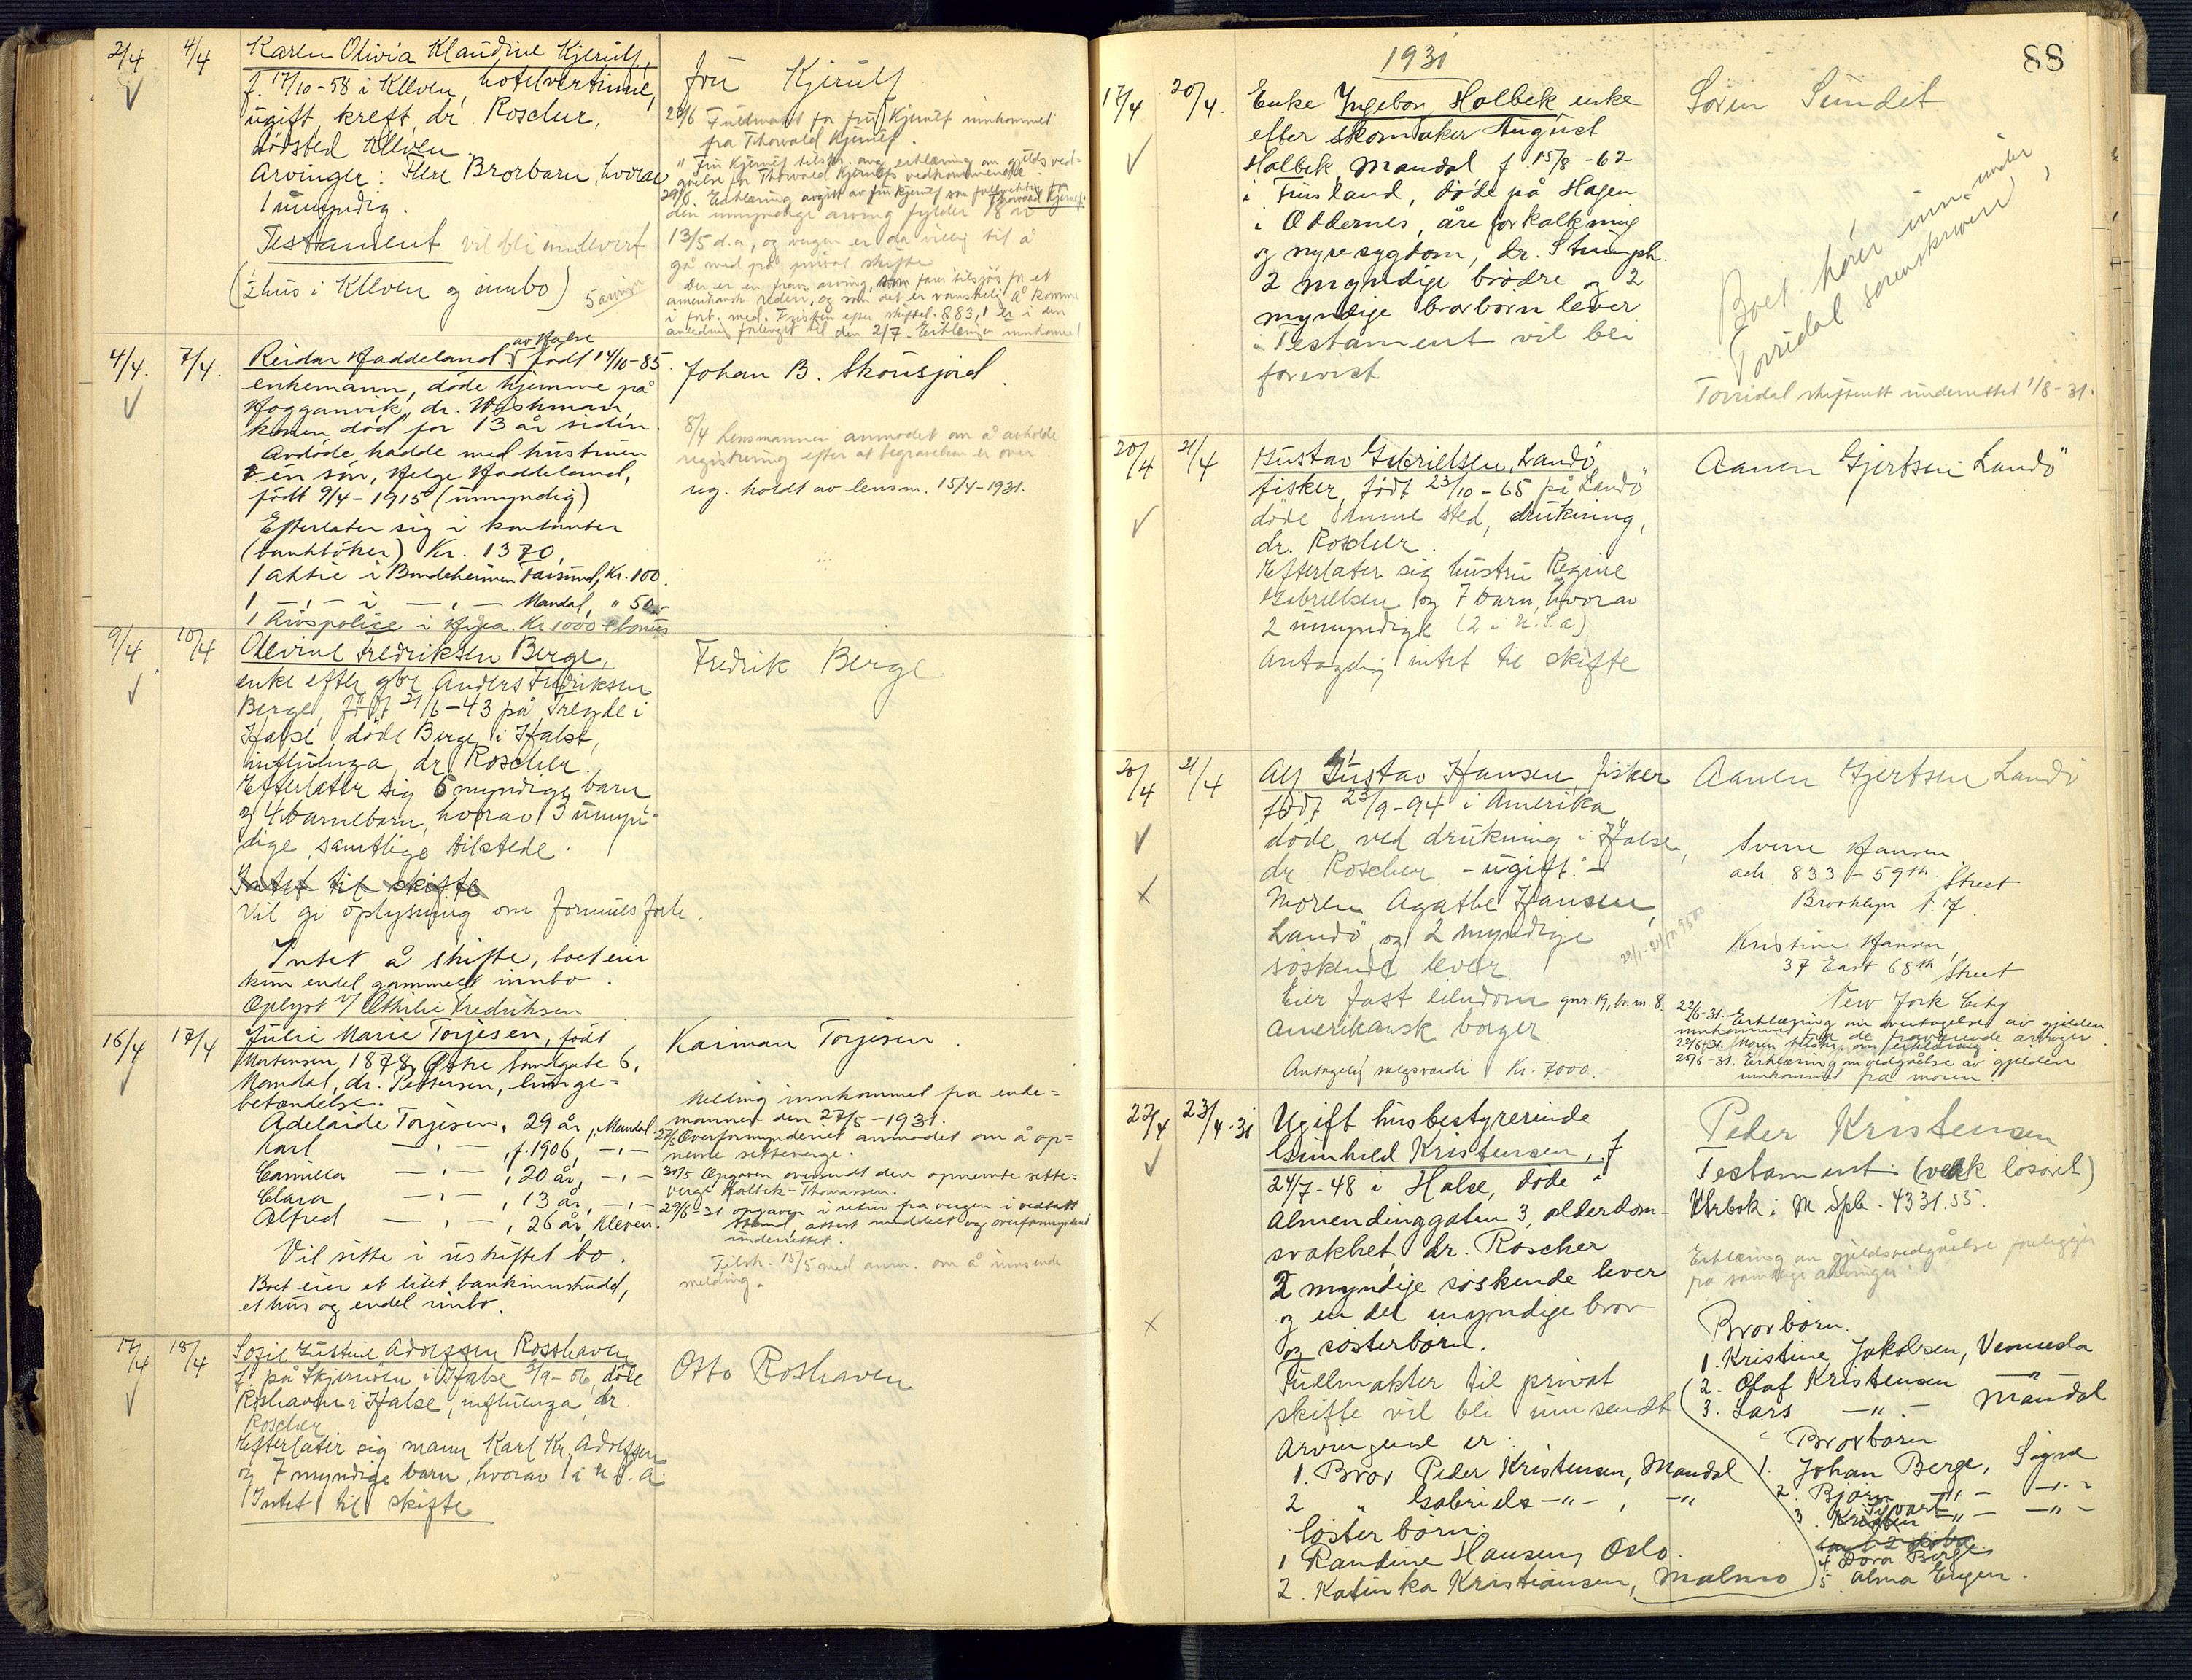 2/4 4/4
Karen Olivia Klaudine Kjerulf,
f. 17/10-58 i Kleven, hotelvertinne,
ugift, kreft, dr. Roscher,
dødsted Kleven.
Arvinger: Flere Brorbarn, hvorav
1 umyndig.
Testament vil bli innlevert
(½ hus i Kleven og innbo) 5 arvinger
Fru Kjerulf
23/6 Fullmakt for fru Kjerulf innkommet
fra Thorvald Kjerulf.
" Fru Kjerulf tilskr. ang. erklæring om gjeldsved-
gåelse for Thorvald Kjerulfs vedkommende.
29/6. Erklæring avgitt av fru Kjerulf som fullmektig for
Thorvald Kjerulf.
den umyndige arving fylder 18 år
13/5 d.a, og vergen er da villig til å
gå med på privat skifte
Der er en frav. arving, som farer tilsjøs for et
amerikansk rederi, og som det er vanskelig å komme
i forb. med. Fristen efter skiftel. § 83, 1 er i den
anledning forlenget til den 2/7. Erklæring innkommet
4/4. 7/4.
Reidar Haddeland av Halse født 14/10-85
enkemann, døde hjemme på
Hogganvik, dr.
konen død for 13 år siden.
Avdøde hadde med hustruen
én søn, Helge Haddeland,
født 9/4-1915 (umyndig)
Efterlater sig i kontanter
(bankbøker) Kr. 1370,
1 aktie i Bondeheimen Farsund, Kr. 100
1 -„- i -„- Mandal, " 50
1 livspolice i Hygea. Kr 1000 + bonus
Johan B. Skeusjord.
8/4 Lensmannen anmodet om å avholde
registrering efter at begravelsen er over.
reg. holdt av lensm. 15/4-1931.
9/4 10/4
Olevine Fredriksen Berge,
enke efter gbr Anders Fredriksen
Berge, født 21/6-43 på Tregde i
Halse døde Berge i Halse,
influenza, dr Roscher.
Efterlater sig 6 myndige barn
og 4 barnebarn, hvorav 3 umyn-
dige, samtlige tilstede.
Intet til skifte
Vil gi oplysning om formuesforh.
Intet å skifte, boet eier
kun endel gammelt innbo.
Oplyst v/ Othilie Fredriksen
Fredrik Berge
16/4 17/4
Julie Marie Torjesen, født
Mortensen 1878, Østre Sandgate 6,
Mandal, dr. Pettersen, lunge-
betændelse.
Adelaide Torjesen, 29 år, Mandal.
Karl -„- , f. 1906, -„-
Camilla -„- , 20 år, -„-
Clara -„- , 13 år, -„-
Alfred -„- , 26 år, Kleven.
Vil sitte i uskiftet bo.
Boet eier et litet bankinnskudd,
et hus og endel innbo.
Kaiman Torjesen.
Melding innkommet fra enke-
mannen den 27/5-1931.
27/5 Overformynderiet anmodet om å op-
nevne setteverge.
30/5 Opgaven oversendt den opnevnte sette-
verge Holbek-Thomassen.
29/6-31 opgaven i retur fra vergen i vedtatt
stand, attest meddelt og overformynderiet
underrettet.
Tilsk. 15/5 med anm. om å innsende
melding.
17/4 18/4
Sofie Gustine Adolfsen Rosshaven
f. på Skjernøen i Halse 3/9-56, døde
Roshaven i Halse, influenza, dr.
Roscher
Efterlater sig mann Karl Kr. Adolfsen
og 7 myndige barn, hvorav 1 i U.S.A.
Intet til skifte
Otto Roshaven
1931
88
17/4 20/4.
Enke Ingeborg Holbek, enke
efter skomaker August
Holbek, Mandal, f. 15/8-62
i Finsland, døde på Hagen
i Oddernes, åreforkalkning
og nyresygdom, dr. Stumph.
2 myndige brødre og 2
myndige brorbørn lever
Testament vil bli
forevist
Søren Sundet
Boet hører inn under
Torridal sorenskriveri,
Torridal skifterett underrettet 1/8-31.
20/4 21/4
Gustav Gabrielsen, Landø
fisker, født 23/10-65 på Landø
døde samme sted, drukning,
dr. Roscher.
Efterlater sig hustru Regine
Gabrielsen og 7 barn, hvorav
2 umyndige (2 i U.S.a)
Antagelig intet til skifte
Aanen Gjertsen Landø
20/4 21/4
Alf Gustav Hansen, fisker
født 23/9-94 i Amerika
døde ved drukning i Halse,
dr. Roscher - ugift. -
Moren Agathe Hansen,
Landø, og 2 myndige
søskende lever
Eier fast eiendom gnr. 19, br. nr. 8.
Amerikansk borger
Antagelig salgsværdi Kr. 7000.
Aanen Gjertsen Landø
Svene Hansen,
adr. 833 - 59th Street
Brooklyn N. Y.
Kristine Hansen,
37 East 68th Street
New York City
22/6-31. Erklæring om overtagelse av gjelden
innkommet fra de fraværende arvinger
22/6-31. Moren tilskr. om erklæring
25/6-31. Erklæring om vedgåelse av gjelden
innkommet fra moren.
22/4 23/4-31
Ugift husbestyrerinde
Gunhild Kristensen, f
24/7-48 i Halse, døde i
Almendinggaten 3, alderdom-
svakhet, dr. Roscher
2 myndige søskende lever
og en del myndige bror
og søsterbørn.
Fullmakter til privat
skifte vil bli innsendt
Arvingene er:
1. Bror Peder Kristensen, Mandal
2 " Gabriels -"- , -"-
Søsterbørn:
1 Randine Hansen, Oslo.
2. Katinka Kristiansen, Malmø
Peder Kristensen
Testament (vekk løsøret)
Kbrbok i M Spb. 4331.55.
Erklæring om gjeldsvedgåelse foreligger
fra samtlige arvinger.
Brorbørn.
1. Kristine Jakobsen, Vennesla
2. Olaf Kristensen -"-
3. Lars -"- - Mandal
Brorbørn
1. Johan Berge, Sogne
2. Bjørn -"- -"-
3. Kristen Syvert -"- -"-
samt 2 døtre
4. Dora Berge
5. Alma Ergen.